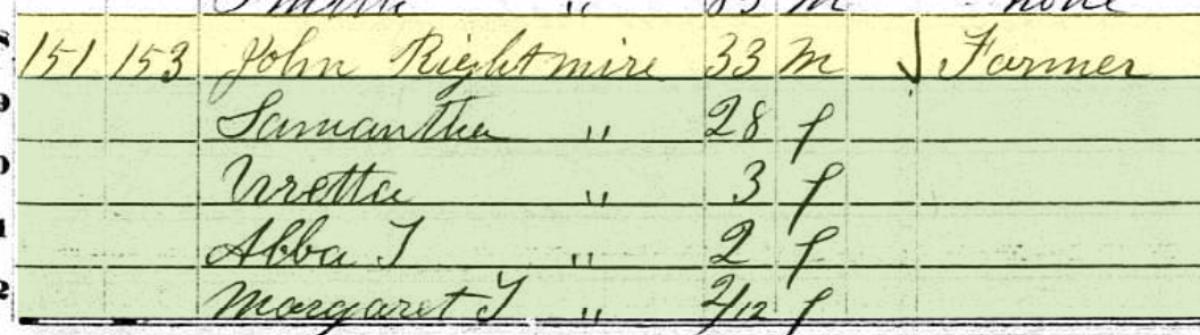 151 153 John Rightmire 33 m Farmer
Samantha " 28 f
Uretta " 3 f
Abba T " 2 f
Margaret T " 2/12 f